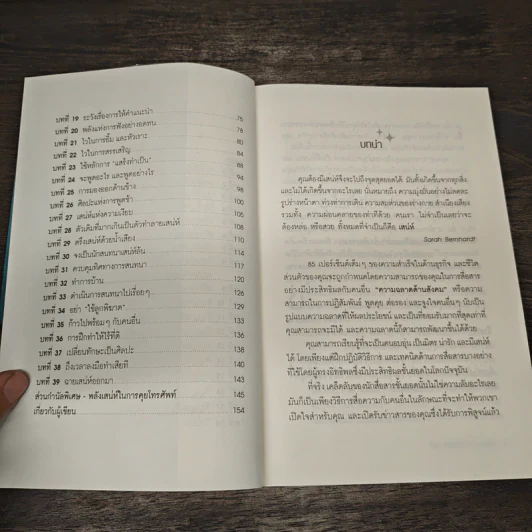 บทที่ 19 ระวังเรื่องการให้คำแนะนำ 76
บทที่ 20 พลังแห่งการฟังอย่างอดทน 78
บทที่ 21 ไวในการยิ้ม และหัวเราะ 80
บทที่ 22 ไวในการสรรเสริญ 84
บทที่ 23 ใช้หลักการ "แสร้งทำเป็น" 88
บทที่ 24 จะพูดอะไร และพูดอย่างไร 90
บทที่ 25 การมองออกด้านข้าง 94
บทที่ 26 ศิลปะแห่งการพูดช้า 100
บทที่ 27 เสน่ห์แห่งความเงียบ 104
บทที่ 28 ตัวเติมที่มากเกินเป็นตัวทำลายเสน่ห์ 108
บทที่ 29 ตรึงเสน่ห์ด้วยน้ำเสียง 110
บทที่ 30 จงเป็นนักสนทนาเสน่ห์ล้น 114
บทที่ 31 ควบคุมทิศทางการสนทนา 117
บทที่ 32 ทำการบ้าน 120
บทที่ 33 ดำเนินการสนทนาไปเรื่อยๆ 126
บทที่ 34 อย่า "ใช้ลูกพิฆาต" 129
บทที่ 35 ก้าวไปพร้อมๆ กับคนอื่น 133
บทที่ 36 การฝึกทำให้ไร้ที่ติ 136
บทที่ 37 เปลี่ยนทักษะเป็นศิลปะ 138
บทที่ 38 ถึงเวลาลงมือทำเสียที 140
บทที่ 39 ฉายเสน่ห์ออกมา 143
ส่วนกำนัลพิเศษ - พลังเสน่ห์ในการคุยโทรศัพท์ 145
เกี่ยวกับผู้เขียน 154
บทนำ
คุณต้องมีเสน่ห์จึงจะไปถึงจุดสุดยอดได้ มันตั้งเกิดขึ้นจากทุกสิ่ง
และไม่ได้เกิดขึ้นจากอะไรเลย มันหมายถึง ความมุ่งมันอย่างไม่ลดละ
รูปร่างหน้าตา ท่วงท่าการเดิน ความสมส่วนของร่างกาย สำเนียงเสียง
รวมทั้ง ความผ่อนคลายของท่าทีด้วย คนเรา ไม่จำเป็นเลยว่าจะ
ต้องหล่อ หรือสวย ทั้งหมดที่จำเป็นก็คือ เสน่ห์
Sarah Bernhardt
85 เปอร์เซ็นต์เต็มๆ ของความสำเร็จในด้านธุรกิจ และชีวิต
ส่วนตัวของคุณจะถูกกำหนดโดยความสามารถของคุณในการสื่อสาร
อย่างมีประสิทธิผลกับคนอื่น "ความฉลาดด้านสังคม" หรือความ
สามารถในการปฏิสัมพันธ์ พูดคุย ต่อรอง และจูงใจคนอื่นๆ นับเป็น
รูปแบบความฉลาดที่ให้ผลประโยชน์ และเป็นที่ยอมรับมากที่สุดเท่าที่
คุณสามารถจะมีได้ และความฉลาดนี้ก็สามารถพัฒนาขึ้นได้ด้วย
คุณสามารถเรียนรู้ที่จะเป็นคนอบอุ่น เป็นมิตร น่ารัก และมีเสน่ห์
ได้ โดยเพียงแต่ฝึกปฏิบัติวิธีการ และเทคนิคด้านการสื่อสารบางอย่าง
ที่ใช้โดยผู้ทรงอิทธิพลซึ่งมีประสิทธิผลชั้นยอดในโลกปัจจุบัน
ที่จริง เคล็ดลับของนักสื่อสารชั้นยอดนั้นไม่ใช่ความลับอะไรเลย
มันก็เป็นเพียงวิธีการสื่อความกับคนอื่นในลักษณะที่จะทำให้พวกเขา
เปิดใจสำหรับคุณ และเปิดรับข่าวสารของคุณซึ่งได้รับการพิสูจน์แล้ว